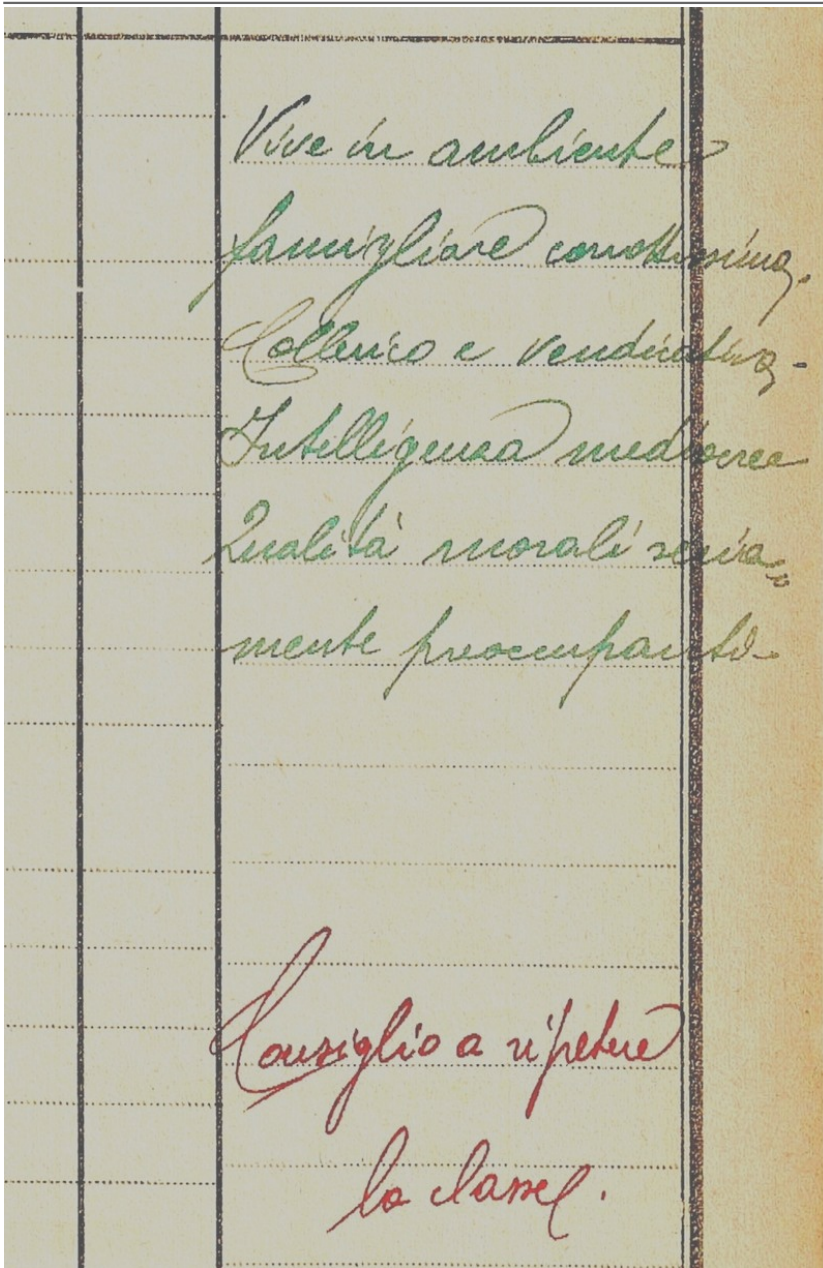 Vive in ambiente
famigliare corrottissimo.
Collerico e vendicativo.
Intelligenza mediocre
Qualità morali seria=
mente preoccupanti.
Consiglio a ripetere
la classe.